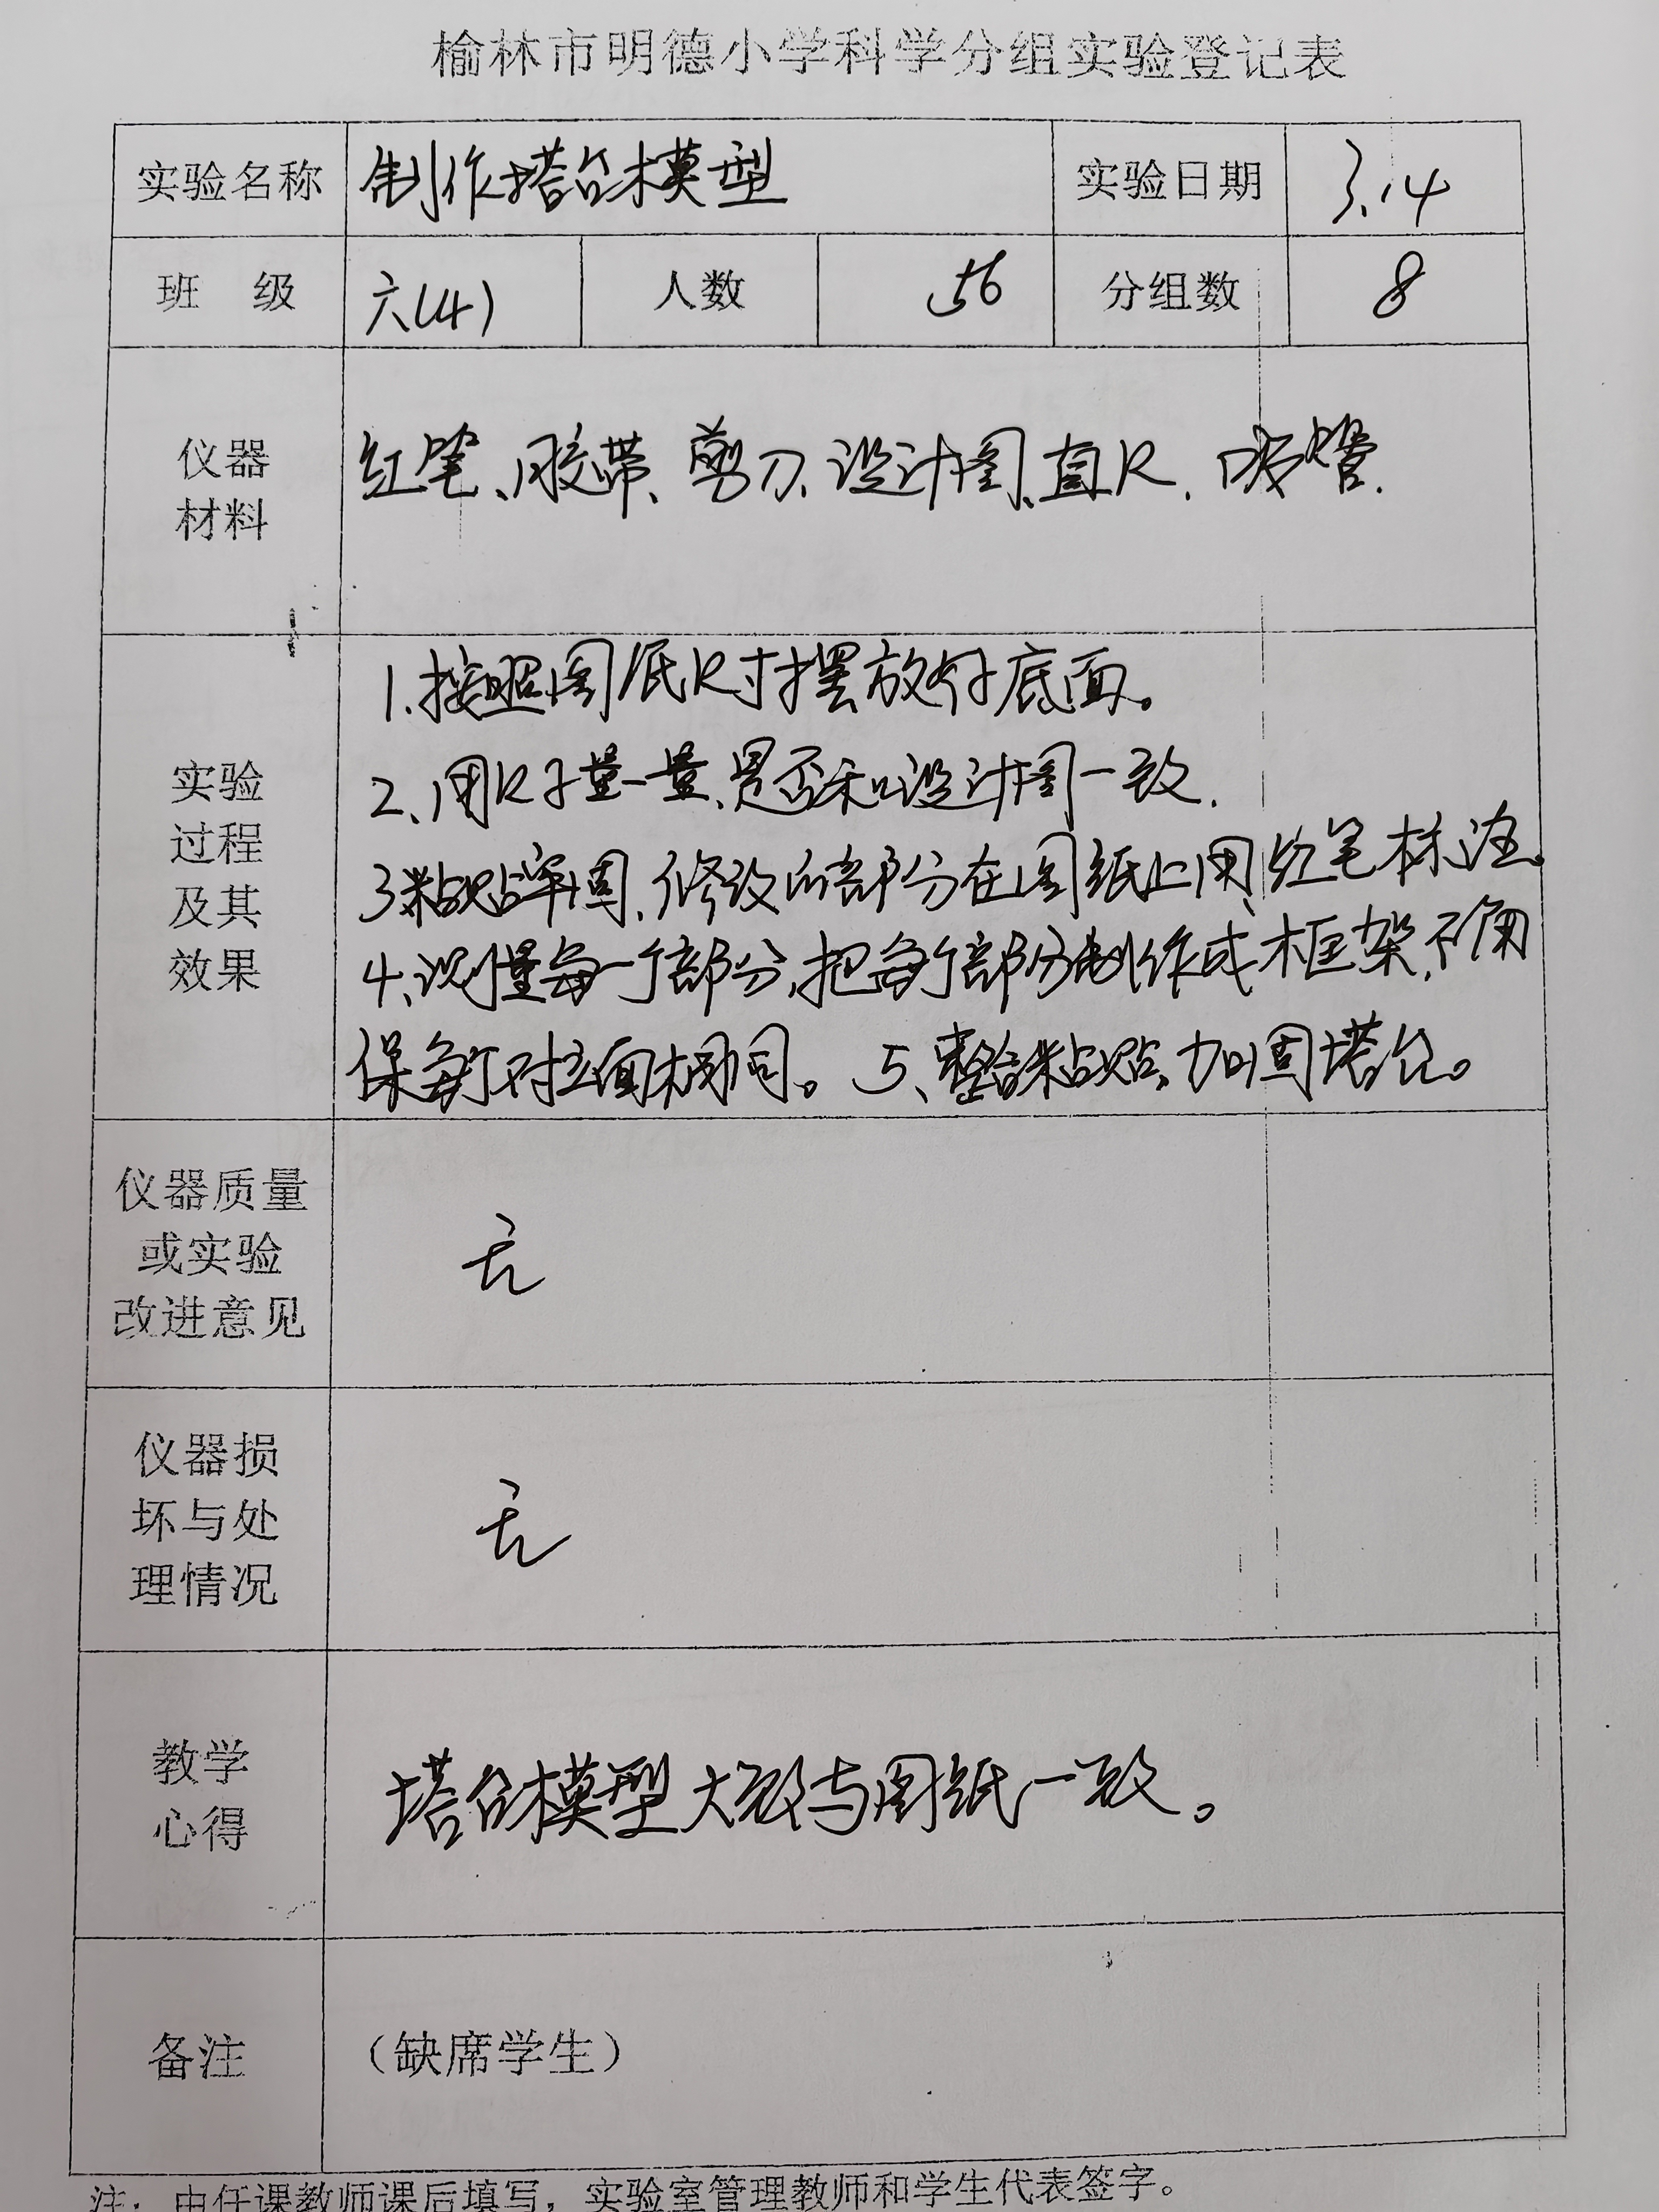 榆林市明德小学科学分组实验登记表
实验名称 制作塔台模型 实验日期 3.14
班 级 六(4) 人数 56 分组数 8
仪器
材料
红笔、胶带、剪刀、设计图、直尺、吸管.
实验
过程
及其
效果
1.按照图纸尺寸摆放好底面。
2、用尺子量一量,是否和设计图一致.
3粘贴牢固,修改的部分在图纸上用红笔标注。
4、测量每一个部分,把每个部分制作成框架,
保每个对立面相同。 5、整合粘贴,加固塔台。
仪器质量
或实验
改进意见
无
仪器损
坏与处
理情况
无
教学
心得
塔台模型大致与图纸一致。
备注 (缺席学生)
注:由任课教师课后填写,实验室管理教师和学生代表签字。